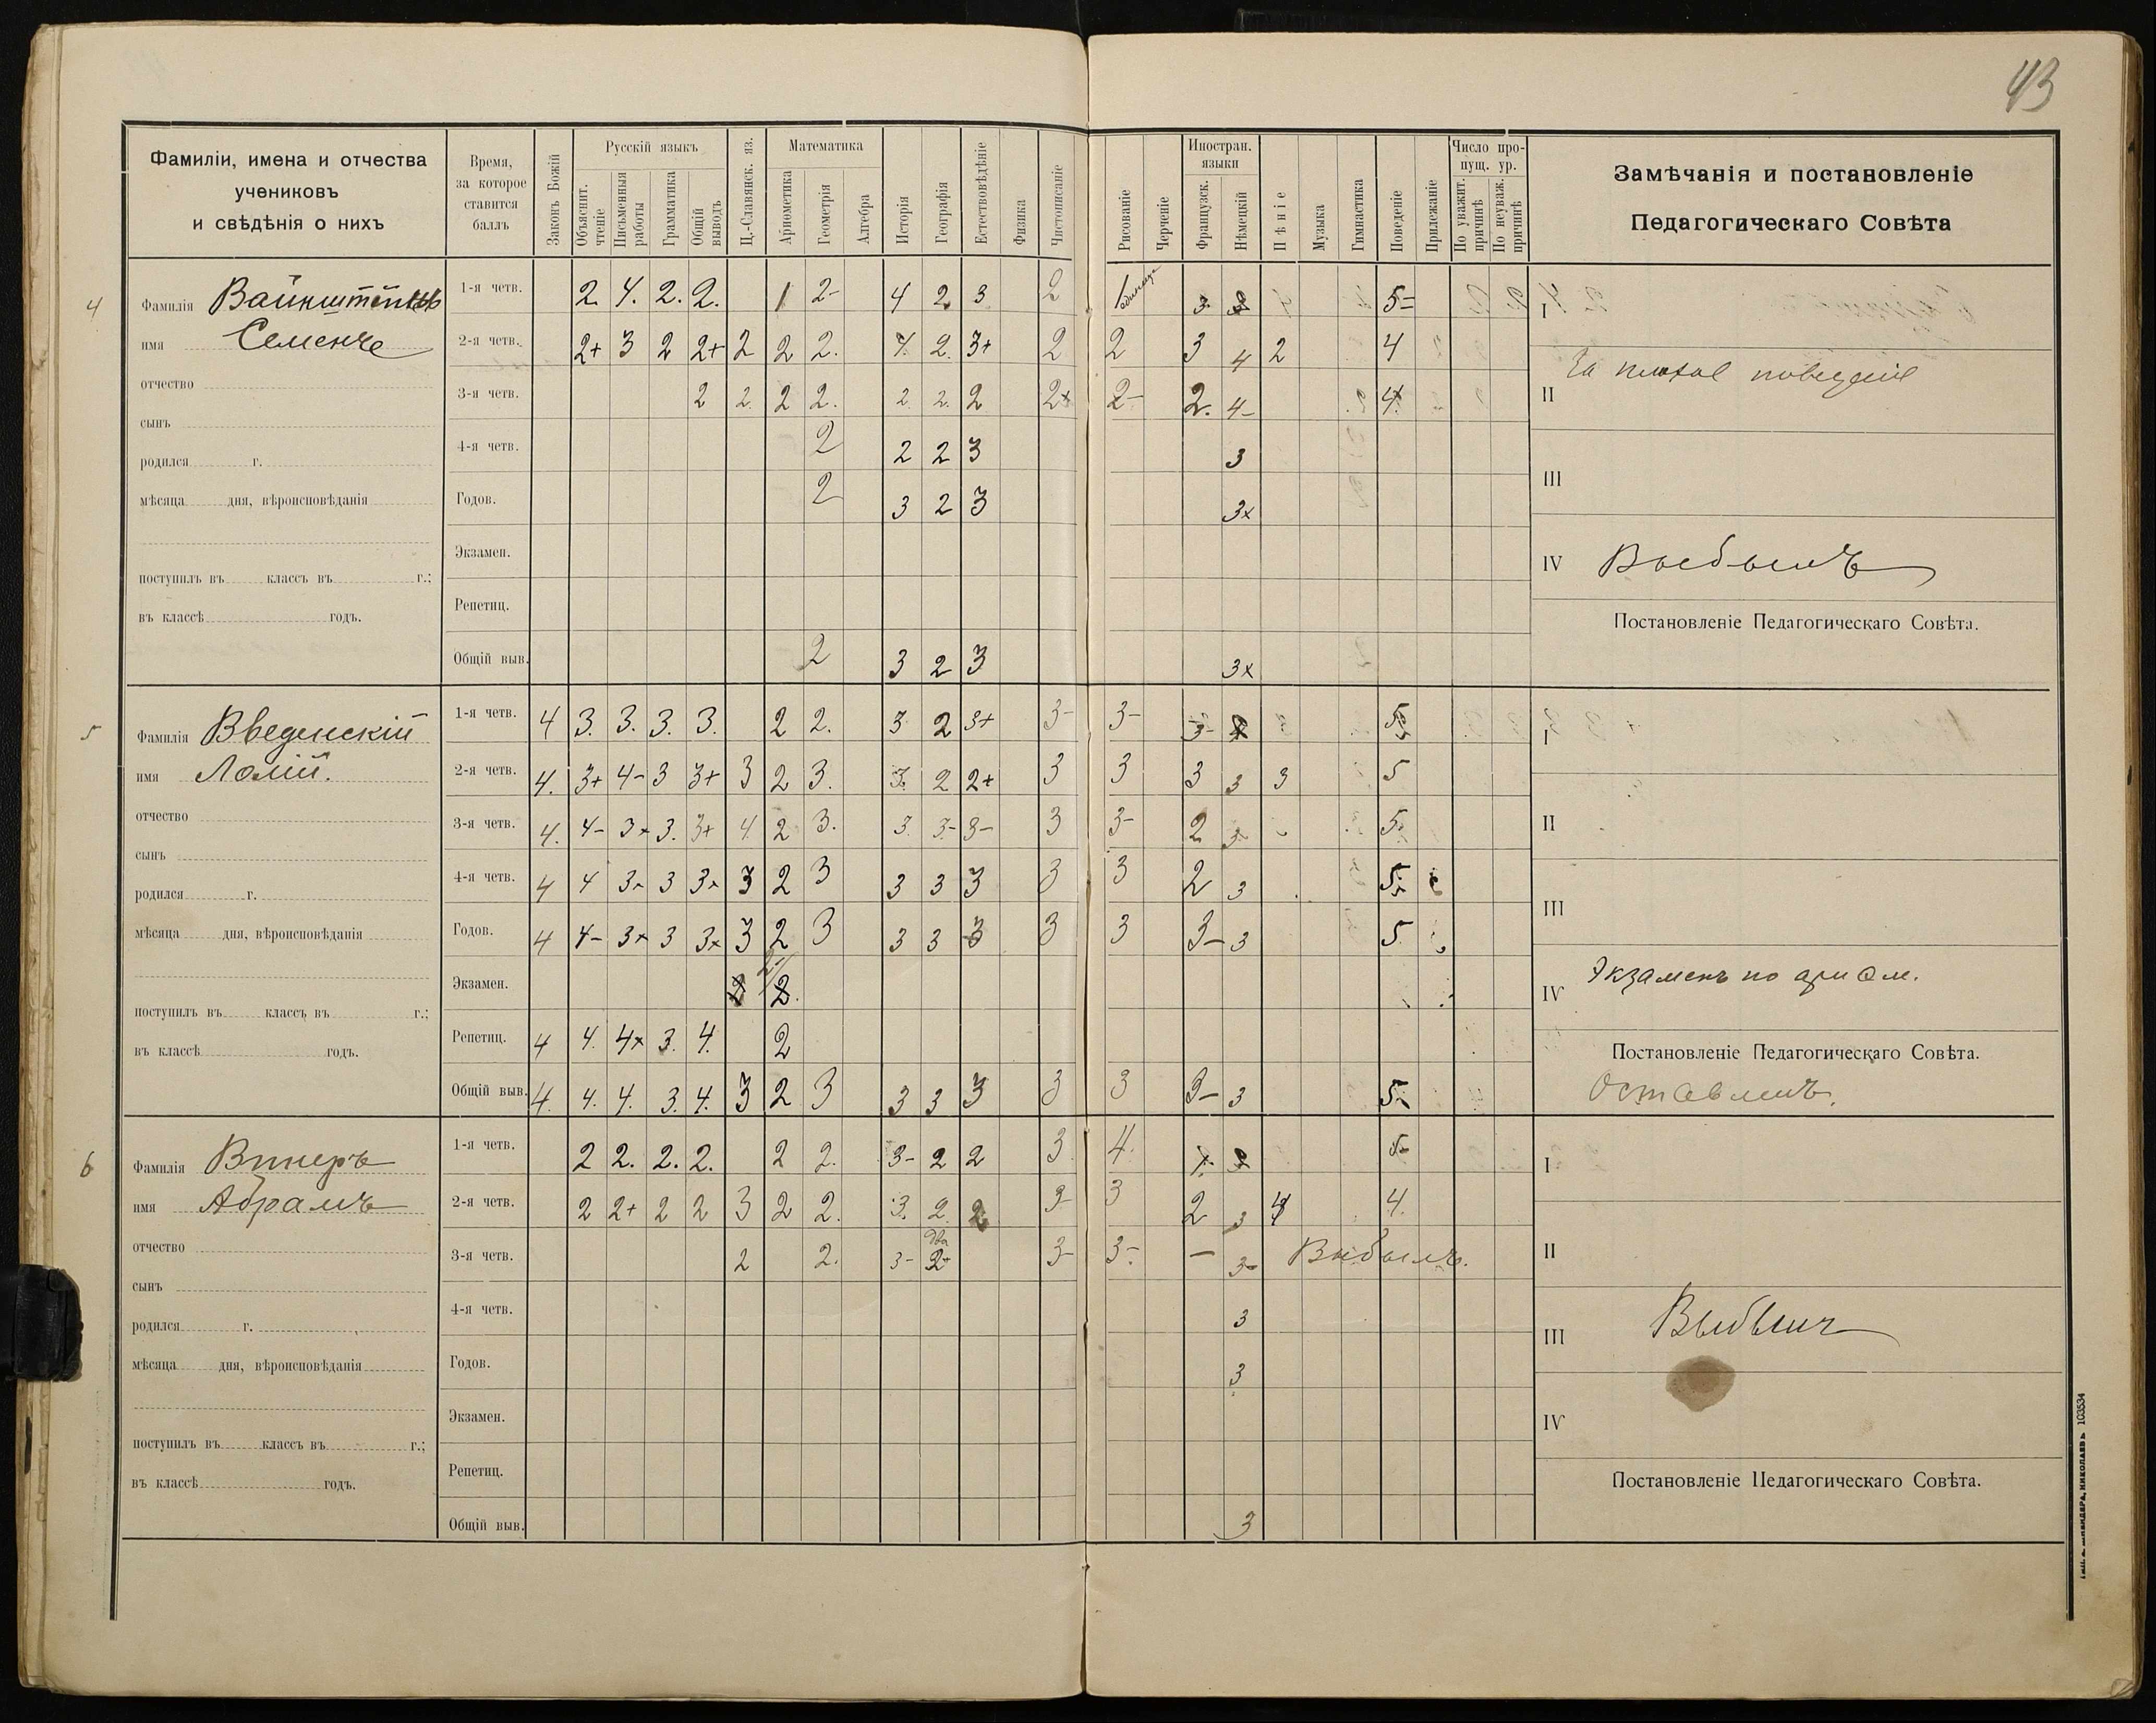 43
Фамиліи, имена и отчества
учениковъ
и свѣдѣнія о нихъ
Время,
за которое
ставится
баллъ
Законъ Божій
Русскій языкъ
Объяснит.
чтеніе
Письменныя
работы
Грамматика
Общій
выводъ
Ц.-Славянск. яз.
Математика
Ариѳметика
Геометрія
Алгебра
Исторія
Географія
Естествовѣдѣніе
Физика
Чистописаніе
Рисованіе
Черченіе
Иностран.
языки
Французск.
Нѣмецкій
Пѣніе
Музыка
Гимнастика
Поведеніе
Прилежаніе
Число про-
пущ. ур.
По уважит.
причинѣ
По неуваж.
причинѣ
Замѣчанія и постановленіе
Педагогическаго Совѣта
4
Фамилія
имя
отчество
сынъ
родился г.
мѣсяца дня, вѣроисповѣданія
поступилъ въ классъ въ г.;
въ классѣ годъ.
1-я четв. 2. 4. 2. 2. 1 2- 4 2 3 2 1 единица 3. 5=
2-я четв. 2+ 3 2 2+ 2 2 2. 4. 2. 3+ 2 2 3 4 2 4
3-я четв. 2 2. 2 2. 2. 2. 2 2+ 2- 2. 4- 4.
4-я четв. 2 2 2 3 3
Годов. 2 3 2 3 3+
Экзамен.
Репетиц.
Общій выв. 2 3 2 3 3+
I
II За плохое поведеніе
III
IV Выбылъ
Постановленіе Педагогическаго Совѣта.
5
Фамилія Введенскій
имя
отчество
сынъ
родился г.
мѣсяца дня, вѣроисповѣданія
поступилъ въ классъ въ г.;
въ классѣ годъ.
1-я четв. 4 3. 3. 3. 3. 2 2. 3 2 3+ 3- 3- 3- 5
2-я четв. 4. 3+ 4- 3 3+ 3 2 3. 3. 2 2+ 3 3 3 3 3 5
3-я четв. 4. 4- 3+ 3. 3+ 4. 2 3. 3. 3- 3- 3 3- 2 3- 5
4-я четв. 4 4 3+ 3 3+ 3 2 3 3 3 3 3 3 2 3 5
Годов. 4 4- 3+ 3 3+ 3 2 3 3 3 3 3 3 3- 3 5
Экзамен. 2.
Репетиц. 4 4. 4+ 3. 4. 2
Общій выв. 4. 4. 4. 3. 4. 3 2 3 3 3 3 3 3 3- 3 5
I
II
III
IV Экзаменъ по ариѳм.
Постановленіе Педагогическаго Совѣта.
Оставленъ.
6
Фамилія
имя Абрамъ
отчество
сынъ
родился г.
мѣсяца дня, вѣроисповѣданія
поступилъ въ классъ въ г.;
въ классѣ годъ.
1-я четв. 2 2. 2. 2. 2 2. 3- 2 2 3 4. 5-
2-я четв. 2 2+ 2 2 3 2 2. 3. 2. 2 3- 3 2 3 4 4.
3-я четв. 2 2. 3- два 2+ 3- 3- - 3- Выбылъ.
4-я четв. 3
Годов. 3
Экзамен.
Репетиц.
Общій выв. 3
I
II
III Выбылъ
IV
Постановленіе Педагогическаго Совѣта.